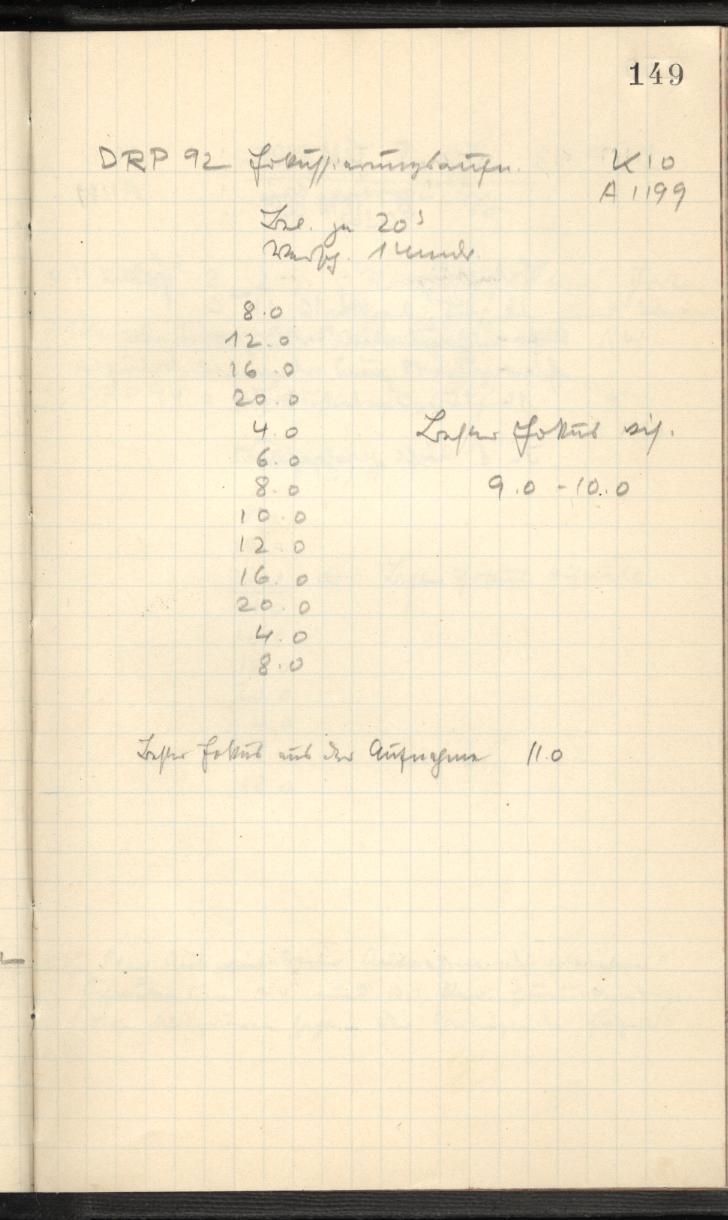 149
DRP 92 Fokussierungsaufn. K 10
A 1199
Bel. je 20ˢ
Versch. 1
8.0
12.0
16.0
20.0
4.0
6.0
8.0
10.0
12.0
16.0
20.0
4.0
8.0
Bester Fokus vis.
9.0 - 10.0
Bester Fokus aus der Aufnahme 11.0